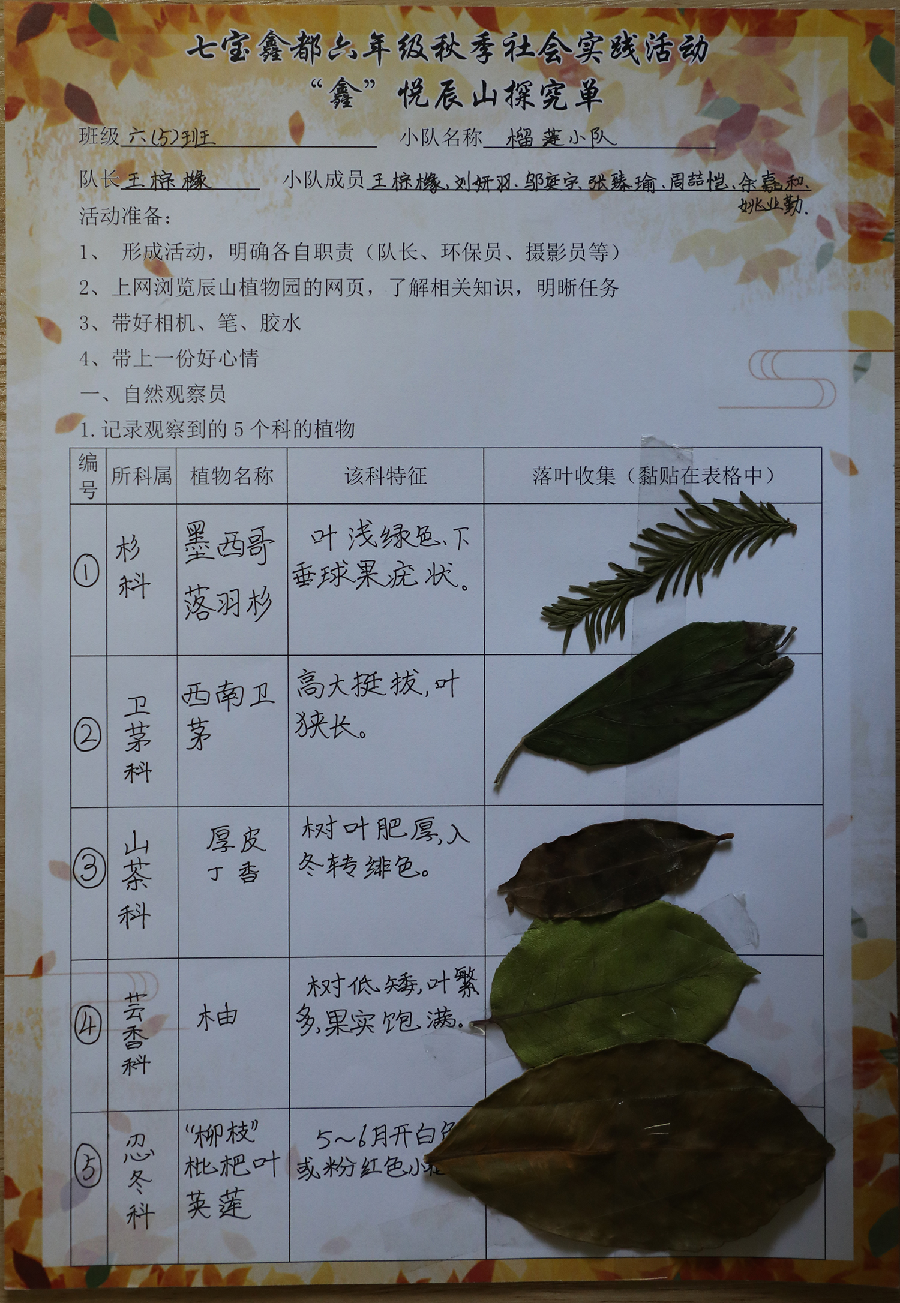 七宝鑫都六年级秋季社会实践活动
“鑫”悦辰山探究单
班级 六(5)班 小队名称 榴莲小队
队长 王梓橼 小队成员 王梓橼、刘妍羽、邬庭宇、张臻瑜、周喆恺、余嘉和、
姚业勤.
活动准备：
1、 形成活动，明确各自职责（队长、环保员、摄影员等）
2、上网浏览辰山植物园的网页，了解相关知识，明晰任务
3、带好相机、笔、胶水
4、带上一份好心情
一、自然观察员
1.记录观察到的5个科的植物
编号 所科属 植物名称 该科特征 落叶收集（黏贴在表格中）
① 杉科 墨西哥落羽杉 叶浅绿色、下垂球果疣状。
② 卫茅科 西南卫茅 高大挺拔,叶狭长。
③ 山茶科 厚皮丁香 树叶肥厚,入冬转绯色。
④ 芸香科 柚 树低矮,叶繁多,果实饱满。
⑤ 忍冬科 “柳枝”枇杷叶英莲 5~6月开白色或粉红色小